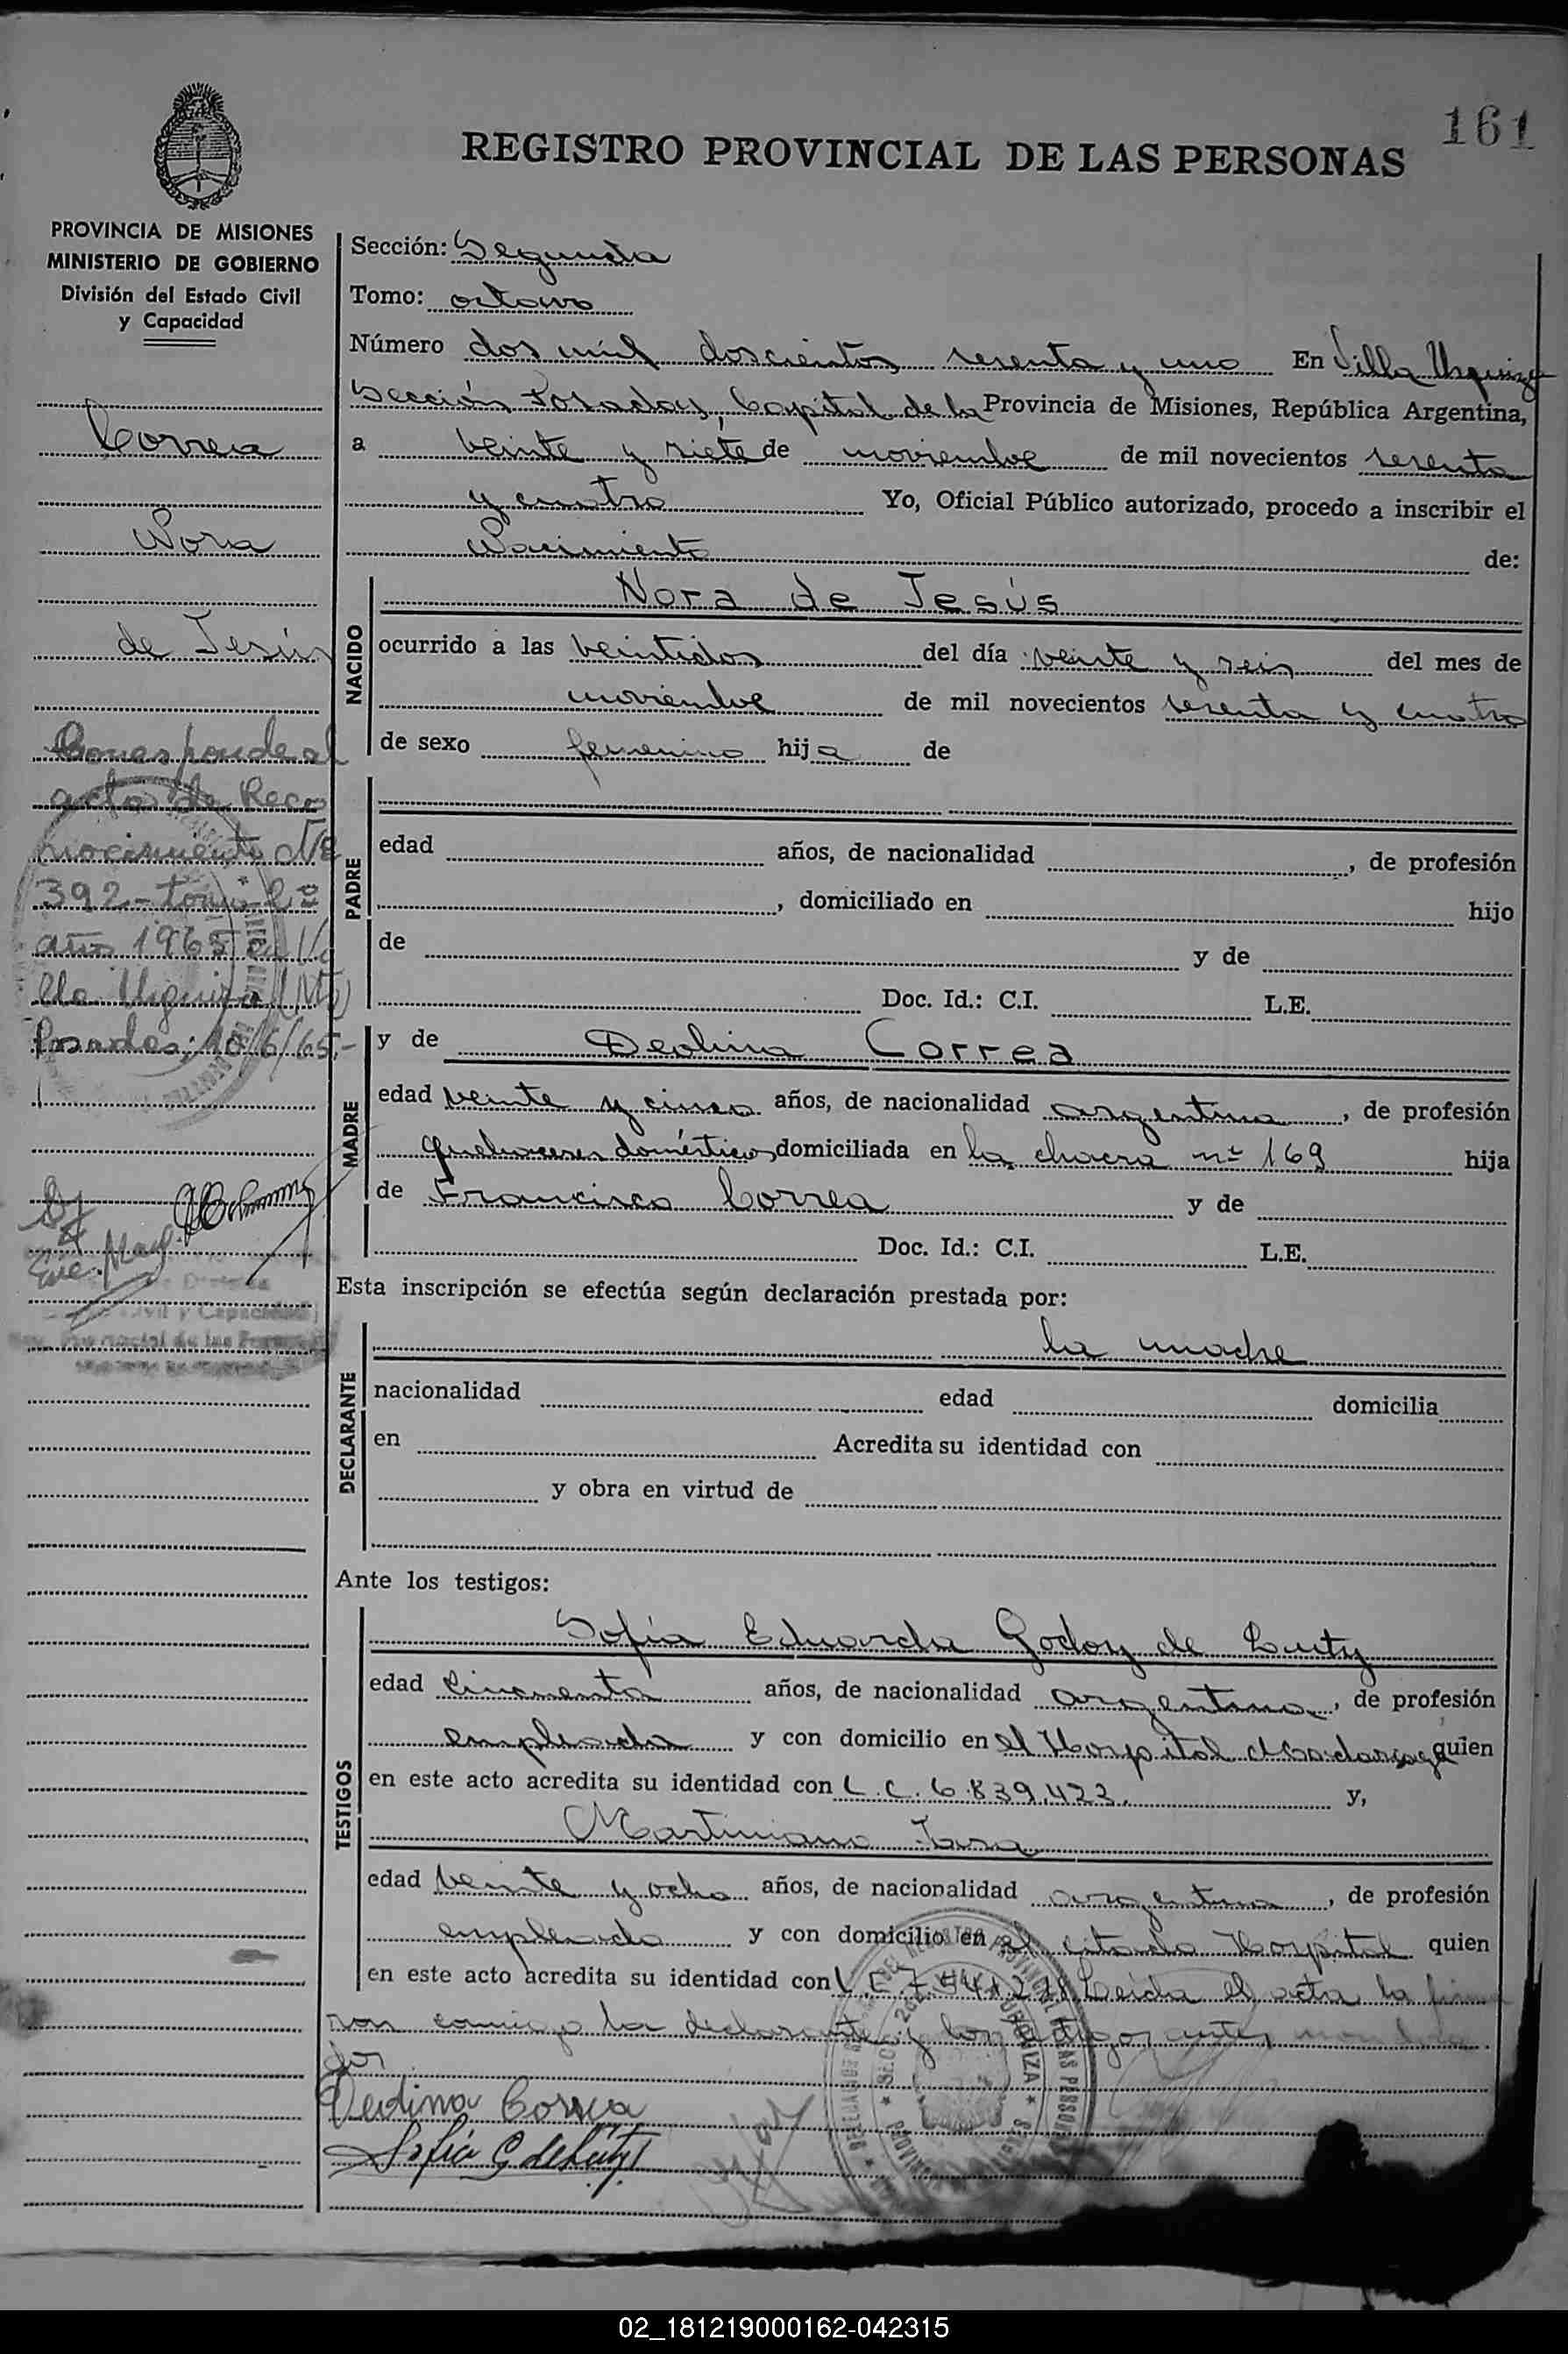 161
REGISTRO PROVINCIAL DE LAS PERSONAS
PROVINCIA DE MISIONES
MINISTERIO DE GOBIERNO
División del Estado Civil
y Capacidad
Correa
Nora
de Jesús
Corresponde al
acta de Reco
nocimiento Nº
392 - tomo
año 1965 en Vi
lla Urquiza
Posadas; 10/6/65.-
Sección: Segunda
Tomo: octavo
Número dos mil doscientos sesenta y uno En Villa Urquiza
Sección Posadas, Capital de la Provincia de Misiones, República Argentina,
a veinte y siete de noviembre de mil novecientos sesenta
y cuatro Yo, Oficial Público autorizado, procedo a inscribir el
Nacimiento de:
NACIDO
Nora de Jesús
ocurrido a las veintidos del día veinte y seis del mes de
noviembre de mil novecientos sesenta y cuatro
de sexo femenino hija de
PADRE
edad años, de nacionalidad , de profesión
, domiciliado en hijo
de y de
Doc. Id.: C.I. L.E.
MADRE
y de Deolina Correa
edad veinte y cinco años, de nacionalidad argentina, de profesión
quehaceres domésticos domiciliada en la chacra nº 169 hija
de Francisco Correa y de
Doc. Id.: C.I. L.E.
Esta inscripción se efectúa según declaración prestada por:
DECLARANTE
la madre
nacionalidad edad domicilia
en Acredita su identidad con
y obra en virtud de
Ante los testigos:
TESTIGOS
Sofía Eduarda Godoy de
edad cincuenta años, de nacionalidad argentina, de profesión
empleada y con domicilio en el Hospital Madariaga quien
en este acto acredita su identidad con L.C. 6.839.423. y,
Martiniano
edad veinte y ocho años, de nacionalidad argentina, de profesión
empleado y con domicilio en el citado Hospital quien
en este acto acredita su identidad con Leida el acta la firma
ron conmigo la declarante y los testigos antes nombra
dos
Deolina Correa
Sofia G de
02_181219000162-042315